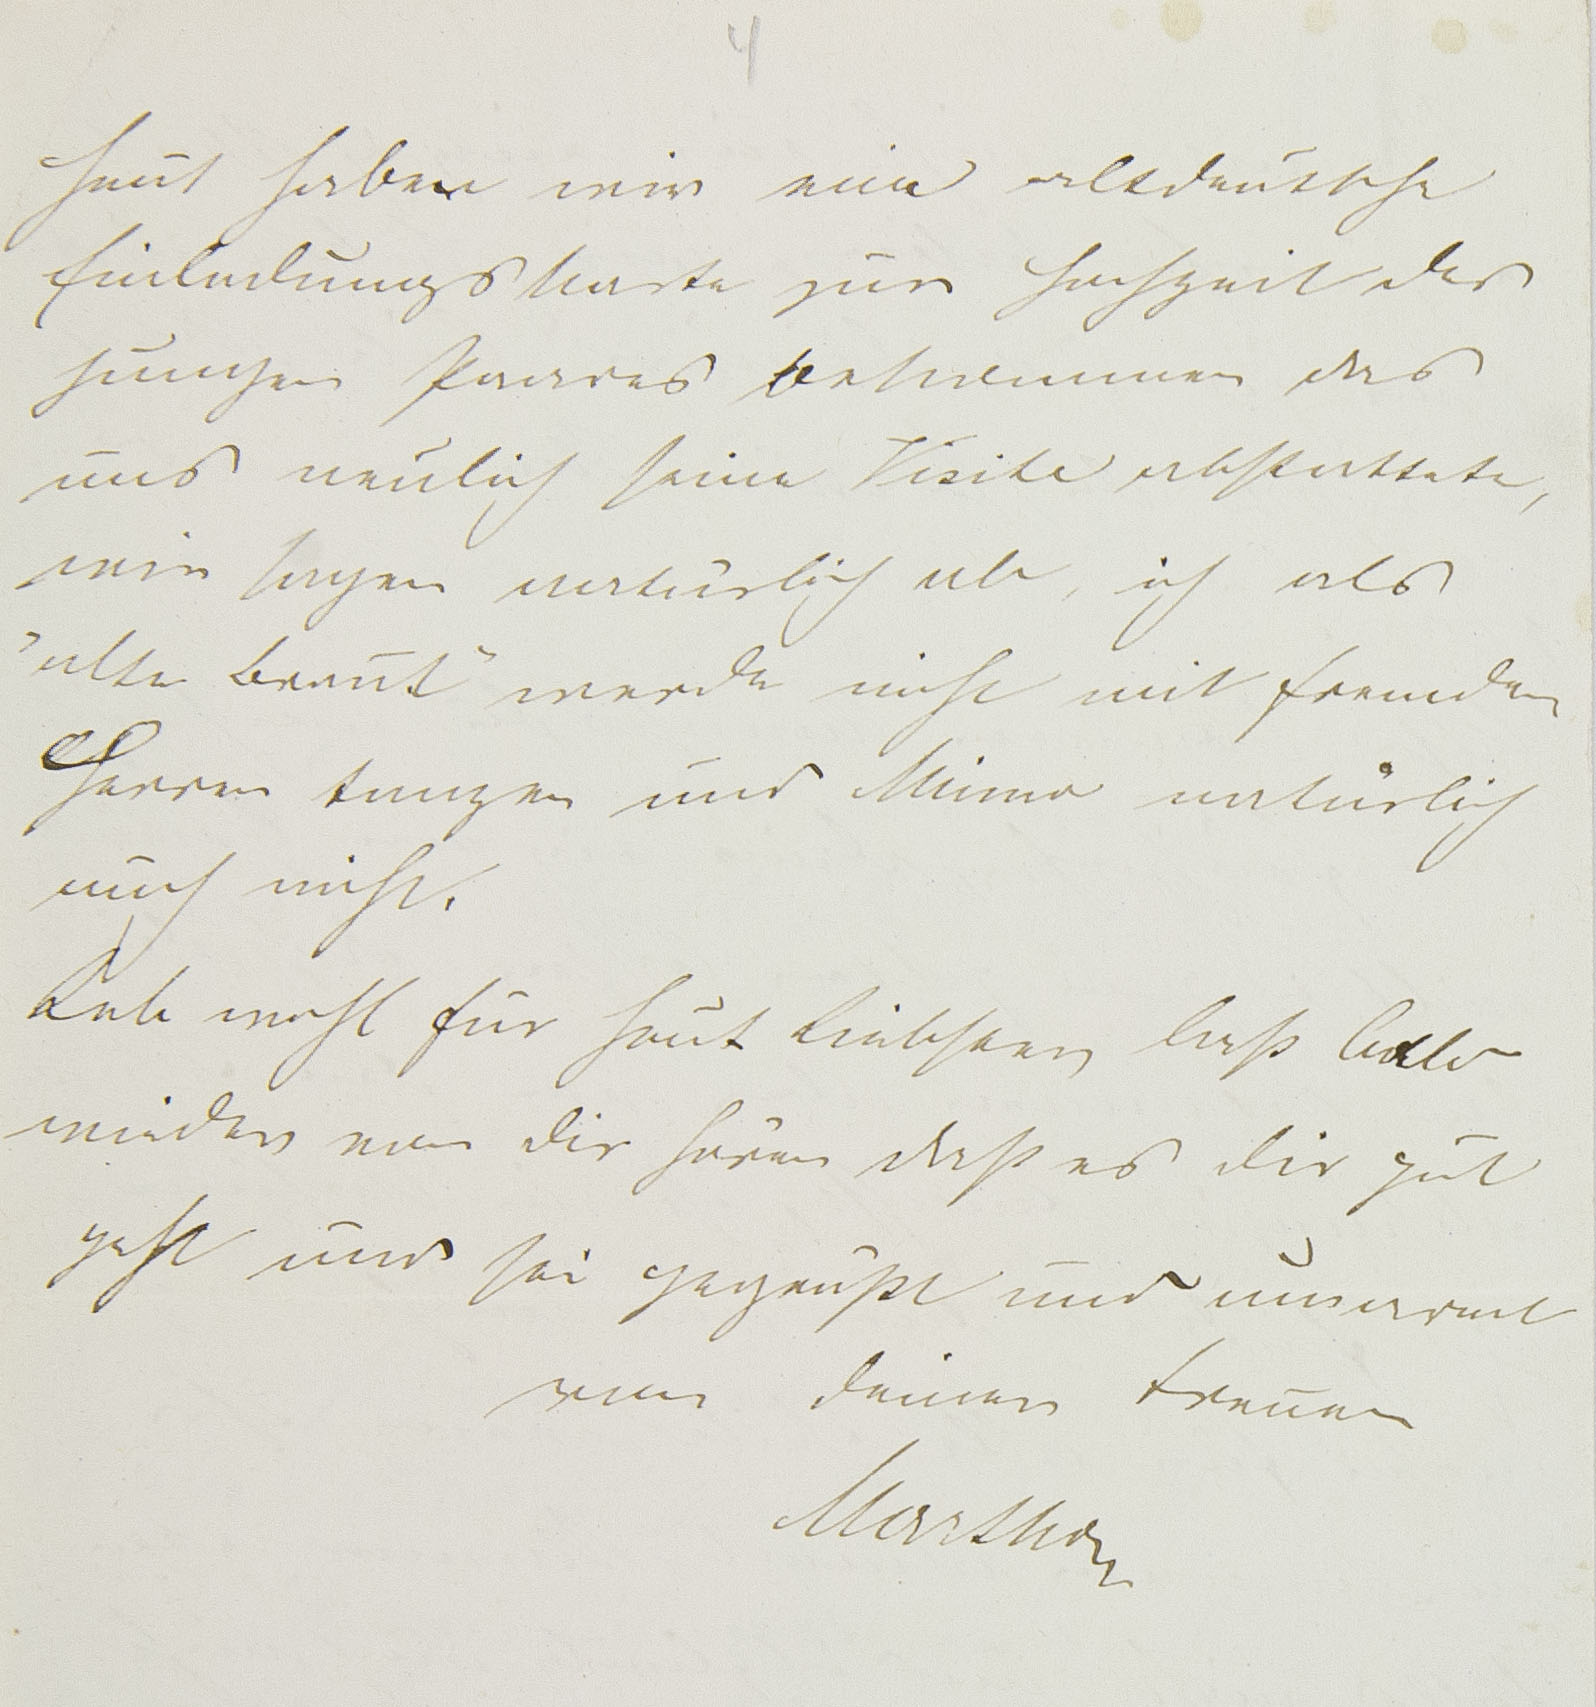 4
Heut haben wir eine altdeutsche
Einladungskarte zur Hochzeit des
jungen Paares bekommen das
uns neulich seine Visite abstattete,
wir sagen natürlich ab, ich als
"alte Braut" werde nicht mit fremden
Herren tanzen und Minna natürlich
auch nicht.
Leb wohl für heut Liebster, laß bald
wieder von dir hören daß es dir gut
geht und sei gegrüßt und umarmt
von deiner treuen
Martha